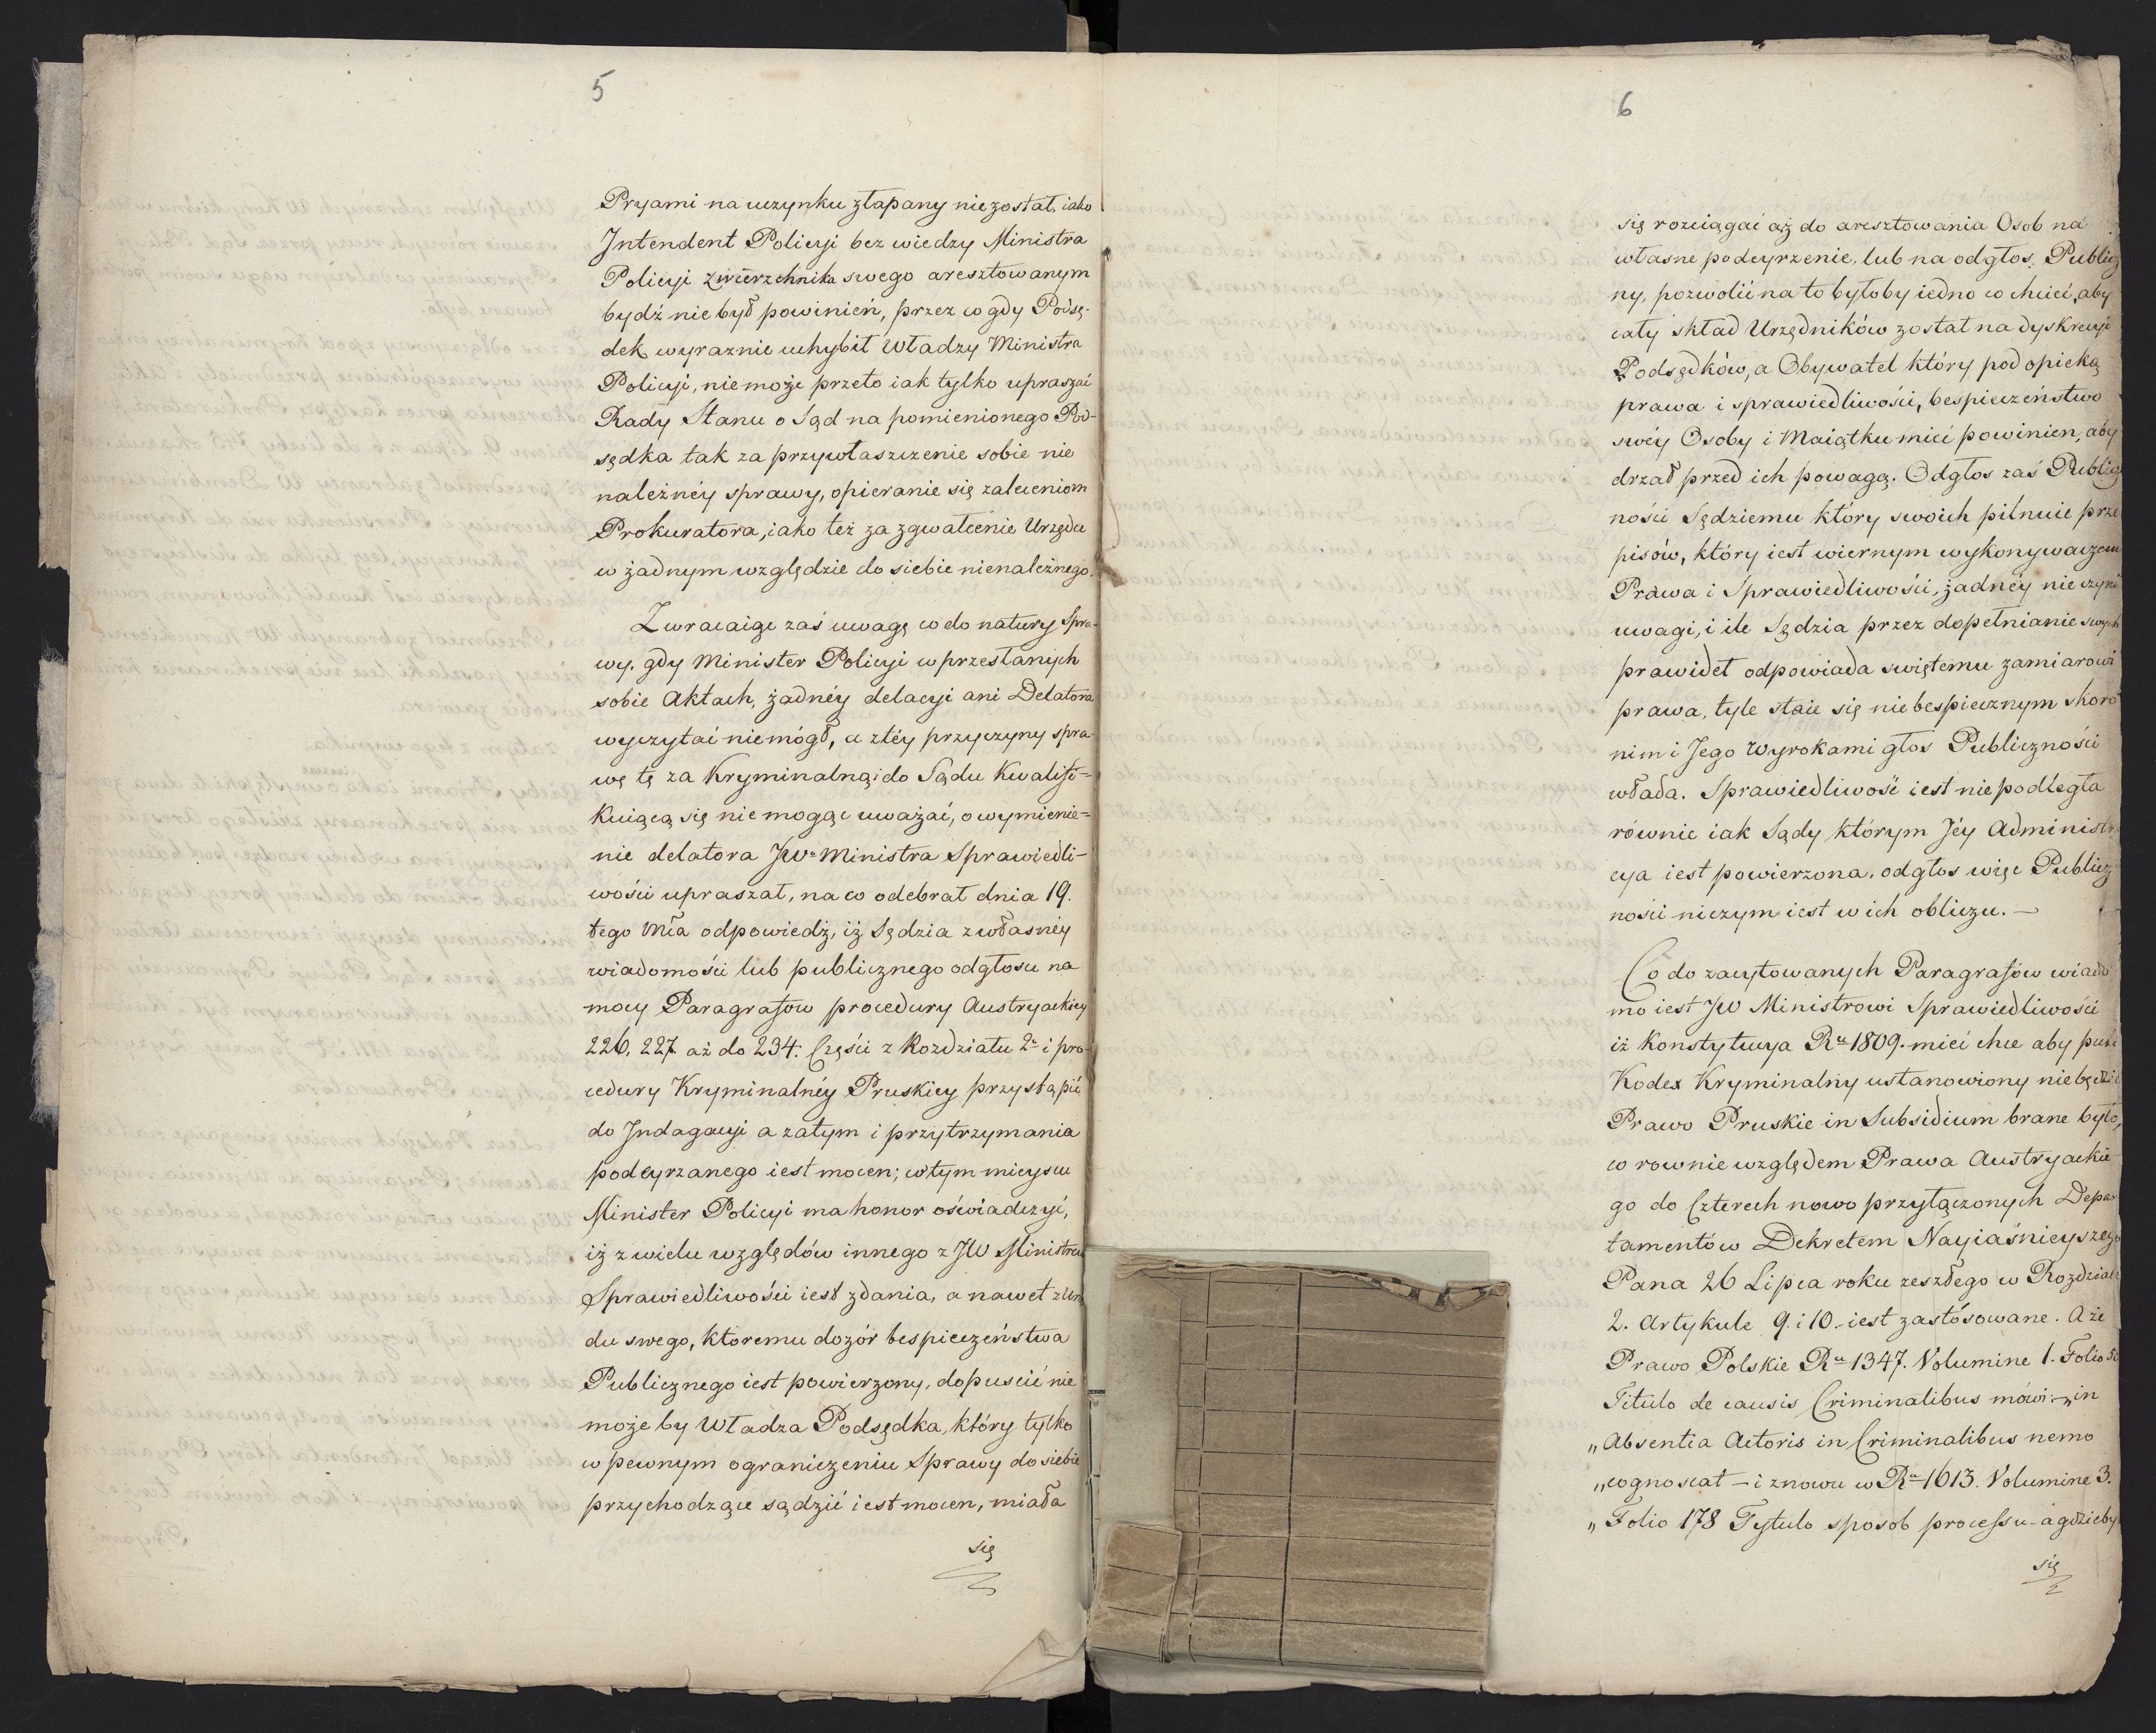 5
Pryami na uczynku złapany niezostał, iako
Jntendent Policyi bez wiedzy Ministra
Policyi Zwierzchnika swego aresztowanym
bydź nie był powinień, przez co gdy Podsę-
dek wyraznie uchybił Władzy Ministra
Policyi, niemoże przeto iak tylko upraszać
Rady Stanu o Sąd na pomienionego Pod-
sędka tak za przywłaszczenie sobie nie
należnéy sprawy, opieranie się zaleceniom
Prokuratora, iako też za zgwałcenie Urzędu
w żadnym względzie do siebie nienależnego.
Zwracaiąc zaś uwagę co do natury Spra-
wy, gdy Minister Policyi w przesłanych
sobie Aktach, żadnéy delacyi ani Delatora
wyczytać niemógł, a ztéy przyczyny spra-
wę tę za Kryminalną i do Sądu Kwalifi-
kuiącą się nie mogąc uważać, o wymienie-
nie delatora JWo Ministra Sprawiedli-
wości upraszał, na co odebrał dnia 19.
tego Mca odpowiedź, iż Sędzia z własnéy
wiadomości lub publicznego odgłosu na
mocy Paragrafow procedury Austryackiey
226. 227. aż do 234. Części z Rozdziału 2o i pro-
cedury Kryminalnéy Pruskiey przystąpić
do Jndagacyi a zatym i przytrzymania
podeyrzanego iest mocen; w tym mieyscu
Minister Policyi ma honor oświadczyć,
iż z wielu względów innego z JW Ministrem
Sprawiedliwości iest zdania, a nawet z Urzę
du swego, ktoremu dozór bespieczeństwa
Publicznego iest powierzony, dopuścić nie
może by Władza Podsędka, który tylko
w pewnym ograniczeniu Sprawy do siebie
przychodzące sądzić iest mocen, miała
się
6
się rozciągać aż do aresztowania Osob na
własne podeyrzenie, lub na odgłos Publicz
ny, pozwolić na to byłoby iedno co chcieć, aby
cały skład Urzędników został na dyskrecyi
Podsędków, a Obywatel który pod opieką
prawa i sprawiedliwości, bespieczeństwo
swéy Osoby i Maiątku mieć powinien, aby
drzał przed ich powagą. Odgłos zaś Public
ności Sędziemu który swoich pilnuie prze
pisów, który iest wiernym wykonywaczem
Prawa i Sprawiedliwości, żadnéy nie czyni
uwagi, i ile Sędzia przez dopełnianie swych
prawideł odpowiada swiętemu zamiarowi
prawa, tyle staie się niebespiecznym skoro
nim i Jego Wyrokami głos Publiczności
włada. Sprawiedliwość iest niepodległa
równie iak Sądy którym Jéy Administr
cya iest powierzona, odgłos więc Publicz
ności niczym iest w ich obliczu. —
Co do zacytowanych Paragrafów wiado
mo iest JW Ministrowi Sprawiedliwości
iż Konstytucya Ru 1809. mieć chce aby puki
Kodex Kryminalny ustanowiony niebędzie
Prawo Pruskie in Subsidium brane było,
co rownie względem Prawa Austryackie
go do Czterech nowo przyłączonych Depar
tamentów Dekretem Nayiaśnieyszego
Pana 26 Lipca roku zeszłego w Rozdziale
2. Artykule 9. i 10. iest zastósowane. A że
Prawo Polskie Ru 1347. Volumine 1. Folio 50
Titulo de causis Criminalibus mówi: „in
„Absentia Actoris in Criminalibus nemo
„cognoscat — i znowu w Ru 1613. Volumine 3.
„Folio 178 Tytulo sposob processu - a gdzieby
się